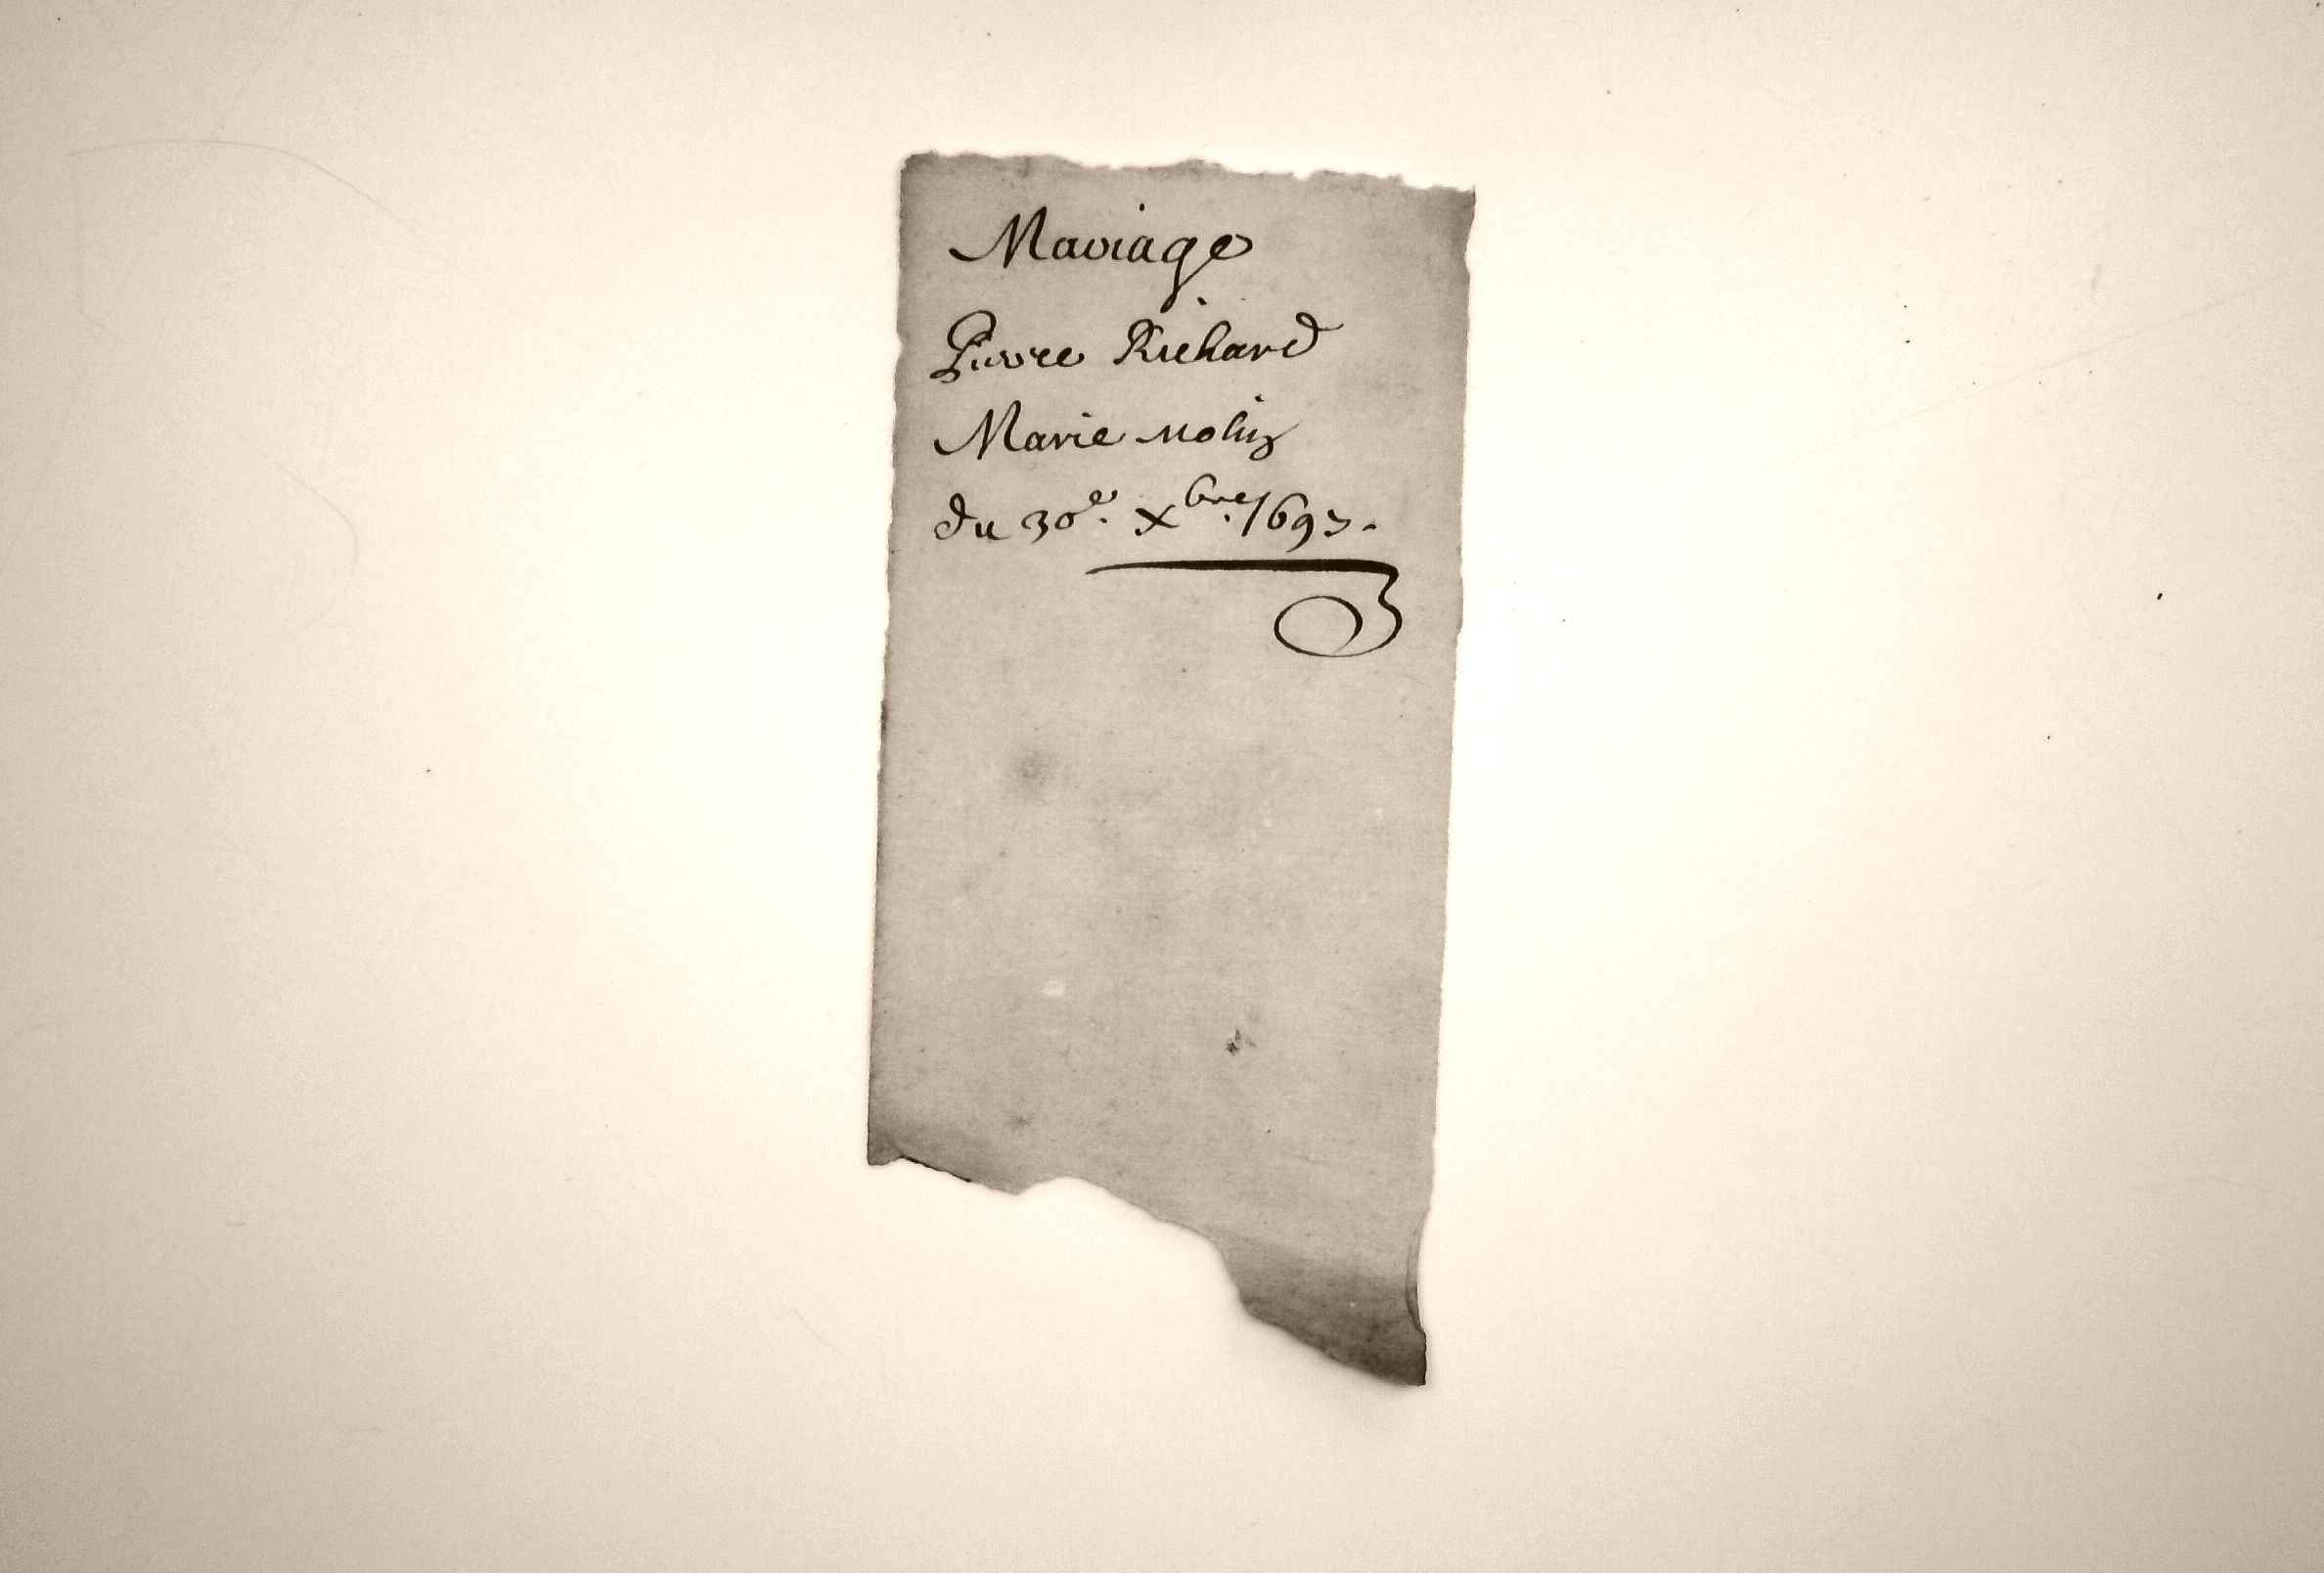 Mariage
Pierre Richard
Marie Molin
du 30e. Xbre. 1693.